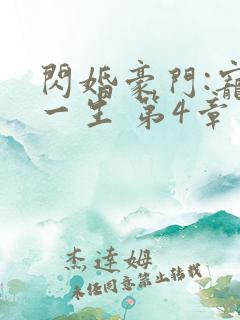 閃婚豪門:寵
一生 第4章
杰達姆
未經同意禁止轉載